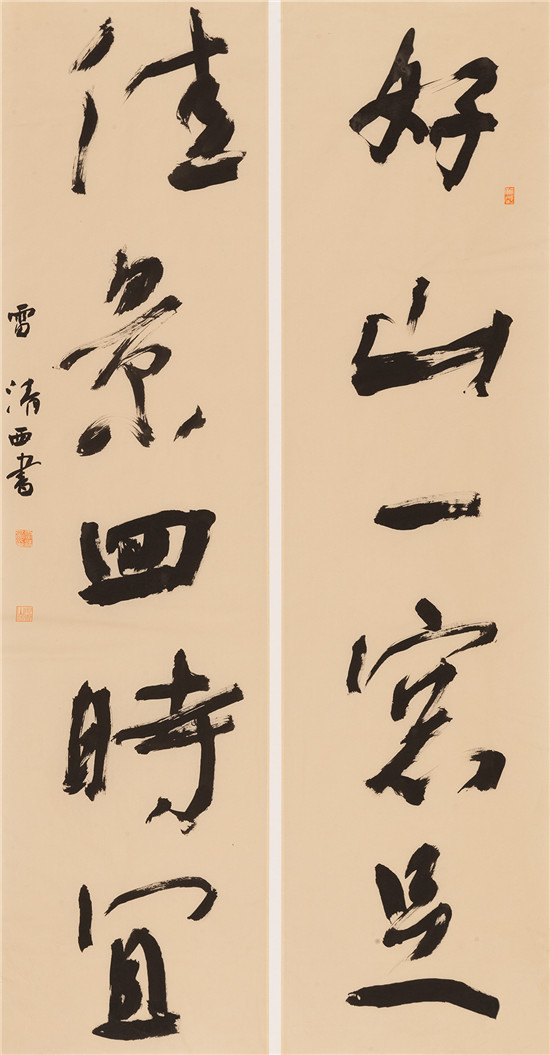 好山一窓足
佳景四時宜
雷清西書